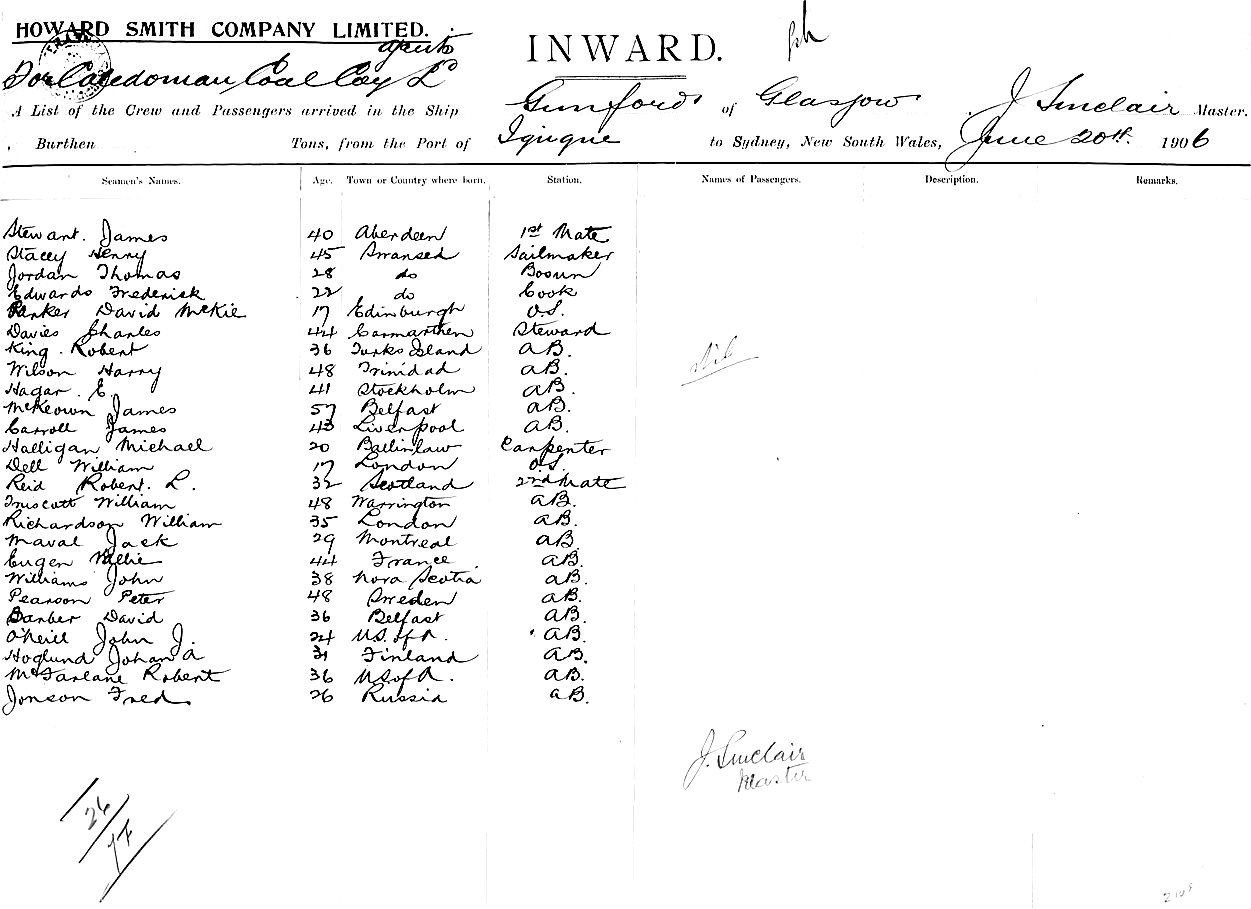 HOWARD SMITH COMPANY LIMITED.
agents
For Caledonian Coal Coy Ld
INWARD.
A List of the Crew and Passengers arrived in the Ship Gunford of Glasgow J Sinclair Master.
Burthen Tons, from the Port of Iquique to Sydney, New South Wales, June 20th. 1906
Seamen's Names. Age. Town or Country where born. Station. Names of Passengers. Description. Remarks.
Stewart. James 40 Aberdeen 1st Mate
Stacey Henry 45 Swansea Sailmaker
Jordan Thomas 28 do Bosun
Edwards Frederick 22 do Cook
Parker David McKie 17 Edinburgh O.S.
Davies Charles 44 Carmarthen Steward
King. Robert 36 Turks Island AB.
Nil
Wilson Harry 48 Trinidad AB.
Hagar. E. 41 Stockholm AB.
McKeown James 57 Belfast AB.
Carroll James 43 Liverpool AB.
Halligan Michael 20 Ballinlaw Carpenter
Dell William 17 London O.S.
Reid Robert. L. 32 Scotland 2nd Mate
Truscott William 48 Warrington AB.
Richardson William 35 London AB.
Maval Jack 29 Montreal AB
Eugen Willie 44 France AB.
Williams John 38 Nova Scotia AB.
Pearson Peter 48 Sweden AB.
Barber David 36 Belfast AB.
O'Neill John J. 24 U.S. of A. AB.
Hoglund Johan A 31 Finland AB.
McFarlane Robert 36 US of A. AB.
Jonson Fred 26 Russia AB.
J. Sinclair
Master
26